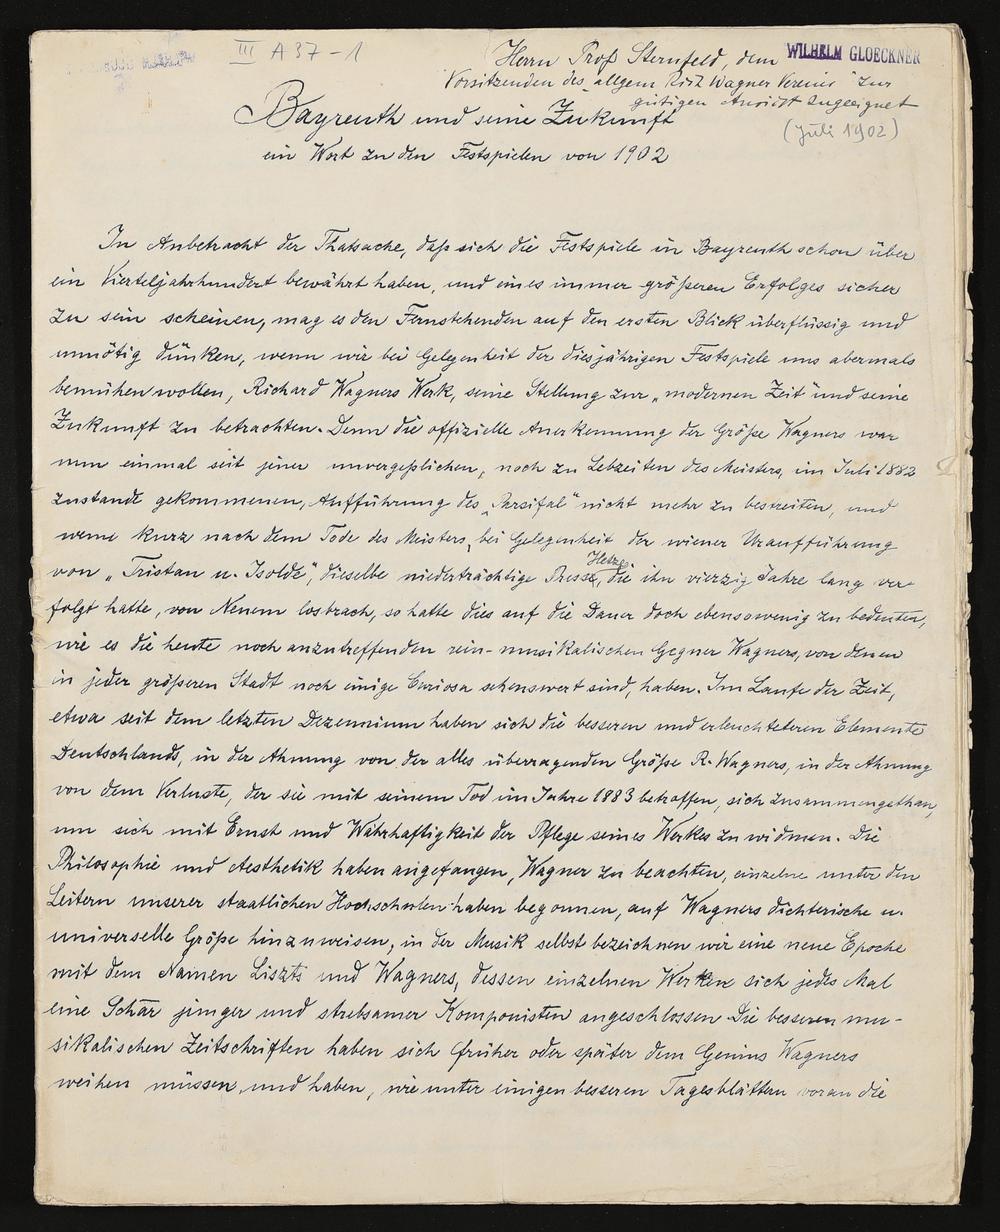 III A 37 - 1
WILHELM GLOECKNER
Herrn Prof Sternfeld, dem
Vorsitzenden des „allgem Rich Wagner Vereins" zur
gütigen Ansicht zugeeignet
(Juli 1902)
Bayreuth und seine Zukunft
ein Wort zu den Festspielen von 1902
In Anbetracht der Thatsache, daß sich die Festspiele in Bayreuth schon über
ein Vierteljahrhundert bewährt haben, und eines immer größeren Erfolges sicher
zu sein scheinen, mag es den Fernstehenden auf den ersten Blick überflüssig und
unnötig dünken, wenn wir bei Gelegenheit der diesjährigen Festspiele uns abermals
bemühen wollen, Richard Wagners Werk, seine Stellung zur „modernen Zeit" und seine
Zukunft zu betrachten. Denn die offizielle Anerkennung der Größe Wagners war
nun einmal seit jener unvergeßlichen, noch zu Lebzeiten des Meisters, im Juli 1882
zustande gekommenen, Aufführung des „Parsifal" nicht mehr zu bestreiten, und
wenn kurz nach dem Tode des Meisters, bei Gelegenheit der wiener Uraufführung
von „Tristan u. Isolde", dieselbe niederträchtige Presse, die ihn vierzig Jahre lang ver-
folgt hatte, von Neuem losbrach, so hatte dies auf die Dauer doch ebensowenig zu bedeuten,
wie es die heute noch anzutreffenden rein-musikalischen Gegner Wagners, von denen
in jeder größeren Stadt noch einige Curiosa sehenswert sind, haben. Im Laufe der Zeit,
etwa seit dem letzten Dezennium haben sich die besseren und erleuchteteren Elemente
Deutschlands, in der Ahnung von der alles überragenden Größe R. Wagners, in der Ahnung
von dem Verluste, der sie mit seinem Tod im Jahre 1883 betroffen, sich zusammengethan,
um sich mit Ernst und Wahrhaftigkeit der Pflege seines Werkes zu widmen. Die
Philosophie und Aesthetik haben angefangen, Wagner zu beachten, einzelne unter den
Leitern unserer staatlichen Hochschulen haben begonnen, auf Wagners dichterische u.
universelle Größe hinzuweisen, in der Musik selbst bezeichnen wir eine neue Epoche
mit dem Namen Liszts und Wagners, dessen einzelnen Werken sich jedes Mal
eine Schar junger und strebsamer Komponisten angeschlossen. Die besseren mu-
sikalischen Zeitschriften haben sich früher oder später dem Genius Wagners
weihen müssen, und haben, wie unter einigen besseren Tagesblättern voran die